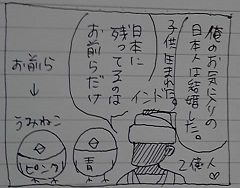 俺のお気に入りの
日本人は結婚した。
子供生まれた。
日本に
残ってるのは
お前らだけ
インド人
2億人♡
お前ら
↓
うみねこ
ピンク
青